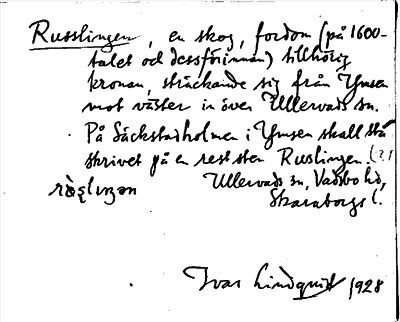 Russlingen, en skog, fordom (på 1600-
talet och dessförinnan) tillhörig
kronan, sträckande sig från Ymsen
mot väster in över Ullervads sn.
På Säckestadholmen i Ymsen skall stå
skrivet på en rest sten Ruslingen. (?)
Ullervads sn, Vadsbo hd,
Skaraborgs l.
Ivar Lindquist 1928